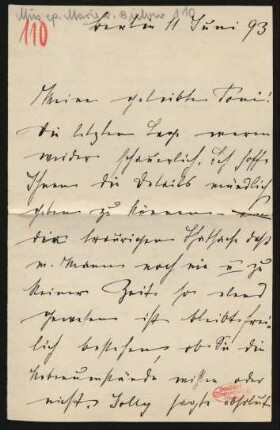 Mus. ep. Marie v. Bülow 110
110
Berlin 11 Juni 93
Meine geliebte Toni!
Die letzten Tage waren
wieder schauerlich. Ich hoffe
Ihnen die Details mündlich
geben zu können –
die traurige Thatsache daß
m. Mann noch nie u zu
keiner Zeit so elend
gewesen ist bleibt frei-
lich bestehen, ob Sie die
Nebenumstände wissen oder
nicht. Jolly sagte absolut